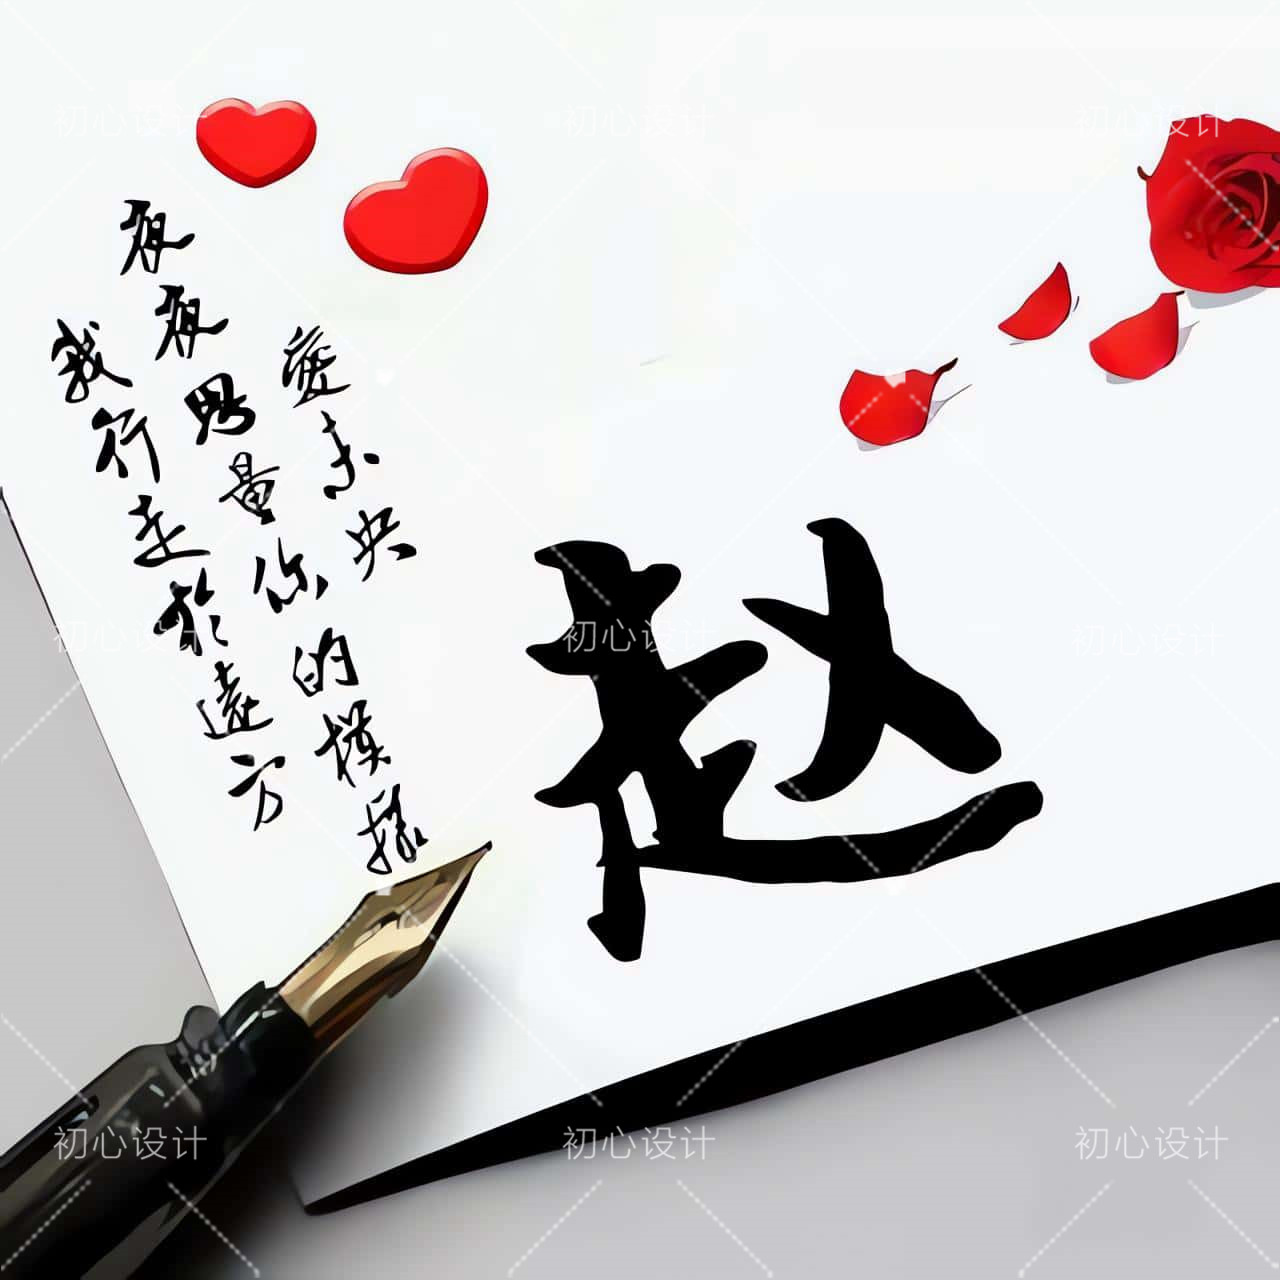 愛未央
夜夜思量你的模樣
我行走於遠方
赵
初心设计
初心设计
初心设计
初心设计
初心设计
初心设计
初心设计
初心设计
初心设计